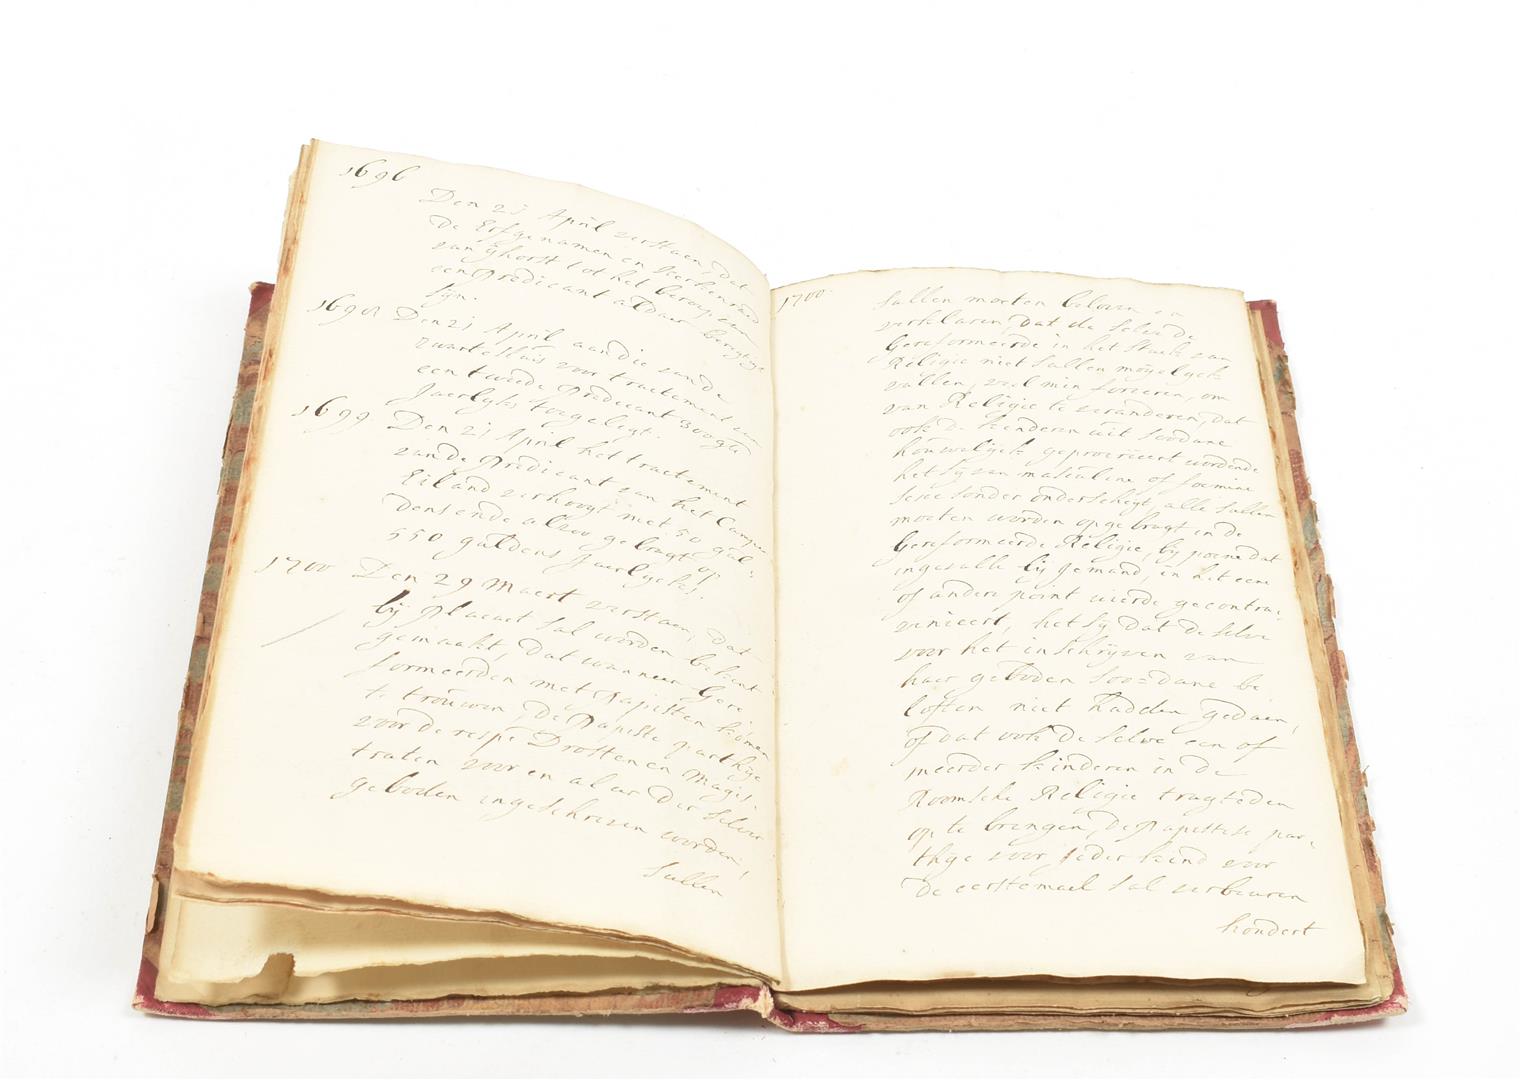 1696
Den 21 April verstaen, dat
de Erfgenamen en kerkenraed
van ghorst tot het beroep van
een Predicant aldaer beregtigt
syn.
1698 Den 21 April aan die van de
Zwartesluis voor tractement van
een tweede Predicant 300 gls
Jaerlyks toegelegt.
1699 Den 21 April het tractement
van de Predicant van het Camper
Eiland verhoogt met 50 gul-
dens ende alzoo gebragt op
550 guldens Jaerlyks.
1700 Den 29 Maert verstaen, dat
bij Placaet sal worden bekent
gemaakt, dat wanneer Gere-
formeerden met Papisten kómen
te troúwen, de Papiste parthije
voor de resp.e Drosten en Magis-
traten voor en al eer der selver
geboden ingeschreven worden,
sullen
1700
sullen moeten beloven en
verklaren, dat de selve de
Gereformeerde in het stuck van
Religie niet sullen moyelyck
vallen, veel min forceren, om
van Religie te veranderen, dat
ook de kinderen úit soodane
hoúwelijck geprocreëert wordende
het sij van masculine of foemine
sexe sonder onderscheyt, alle sullen
moeten worden opgebragt in de
Gereformeerde Religie, bij poene dat
ingevalle bij jemand, in het eene
of andere point wierde gecontra-
venieert, het sij dat de selve
voor het inschrijven van
haer geboden soo-dane be
loften niet hadden gedaen,
of dat ook de selve een of
meerder kinderen in de
Roomsche Religie tragteden
op te brengen, de Papistise par-
thije voor jeder kind voor
de eerstemael sal verbeuren
hondert